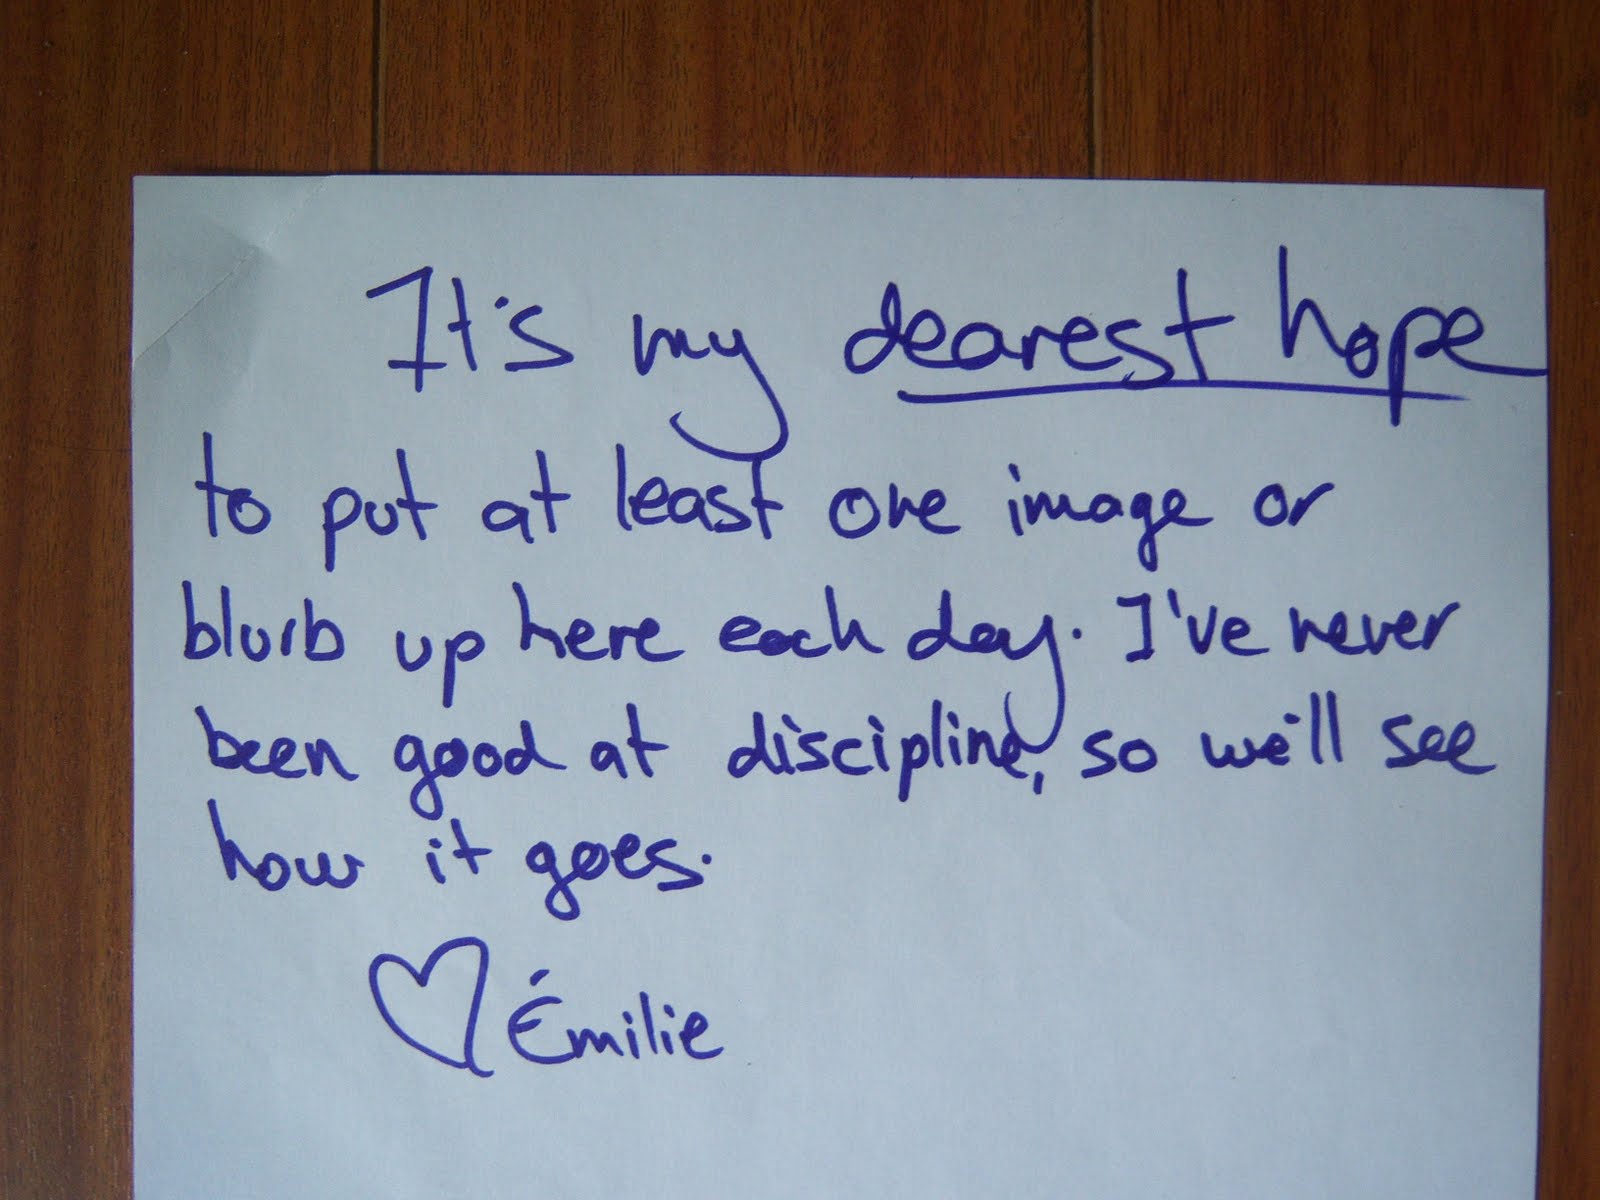 It's my dearest hope
to put at least one image or
blurb up here each day. I've never
been good at discipline, so we'll see
how it goes.
♡ Émilie